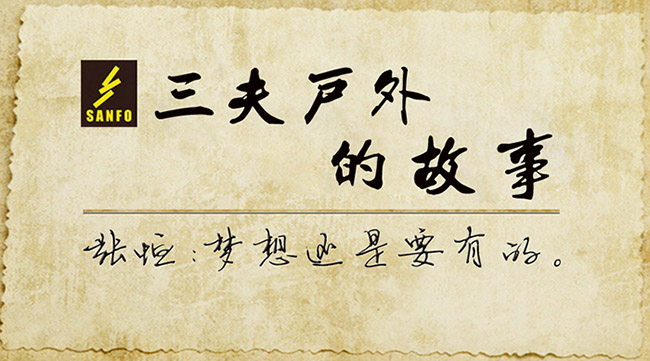 SANFO
三夫户外
的故事
张恒:梦想还是要有的。